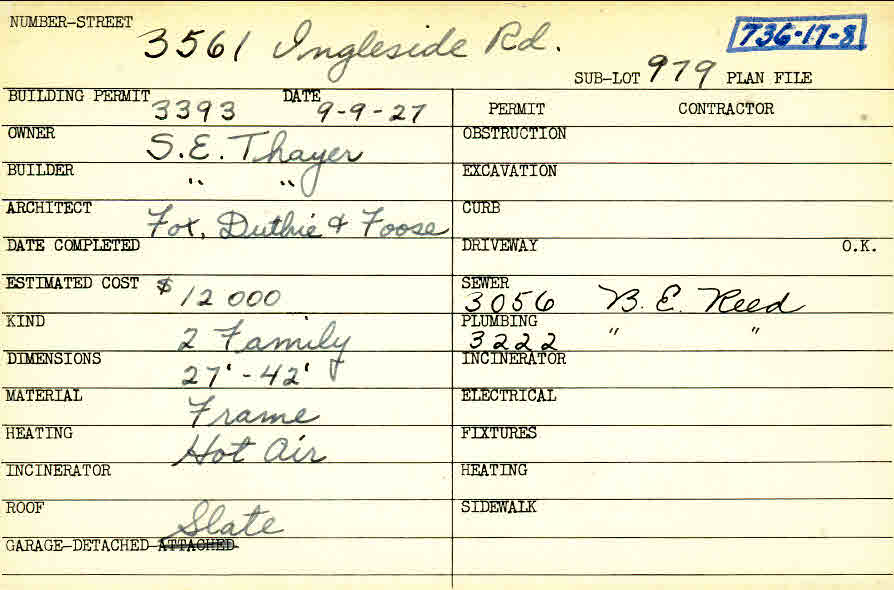 NUMBER-STREET 3561 Ingleside Rd. 736-17-8
SUB-LOT 979 PLAN FILE
BUILDING PERMIT 3393 DATE 9-9-27
PERMIT CONTRACTOR
OWNER S.E. Thayer
OBSTRUCTION
BUILDER " "
EXCAVATION
ARCHITECT Fox, Duthie & Foose
CURB
DATE COMPLETED
DRIVEWAY O.K.
ESTIMATED COST $12000
SEWER 3056 B. E. Reed
KIND 2 Family
PLUMBING 3222 " "
DIMENSIONS 27' - 42'
INCINERATOR
MATERIAL Frame
ELECTRICAL
HEATING Hot Air
FIXTURES
INCINERATOR
HEATING
ROOF Slate
SIDEWALK
GARAGE-DETACHED ATTACHED